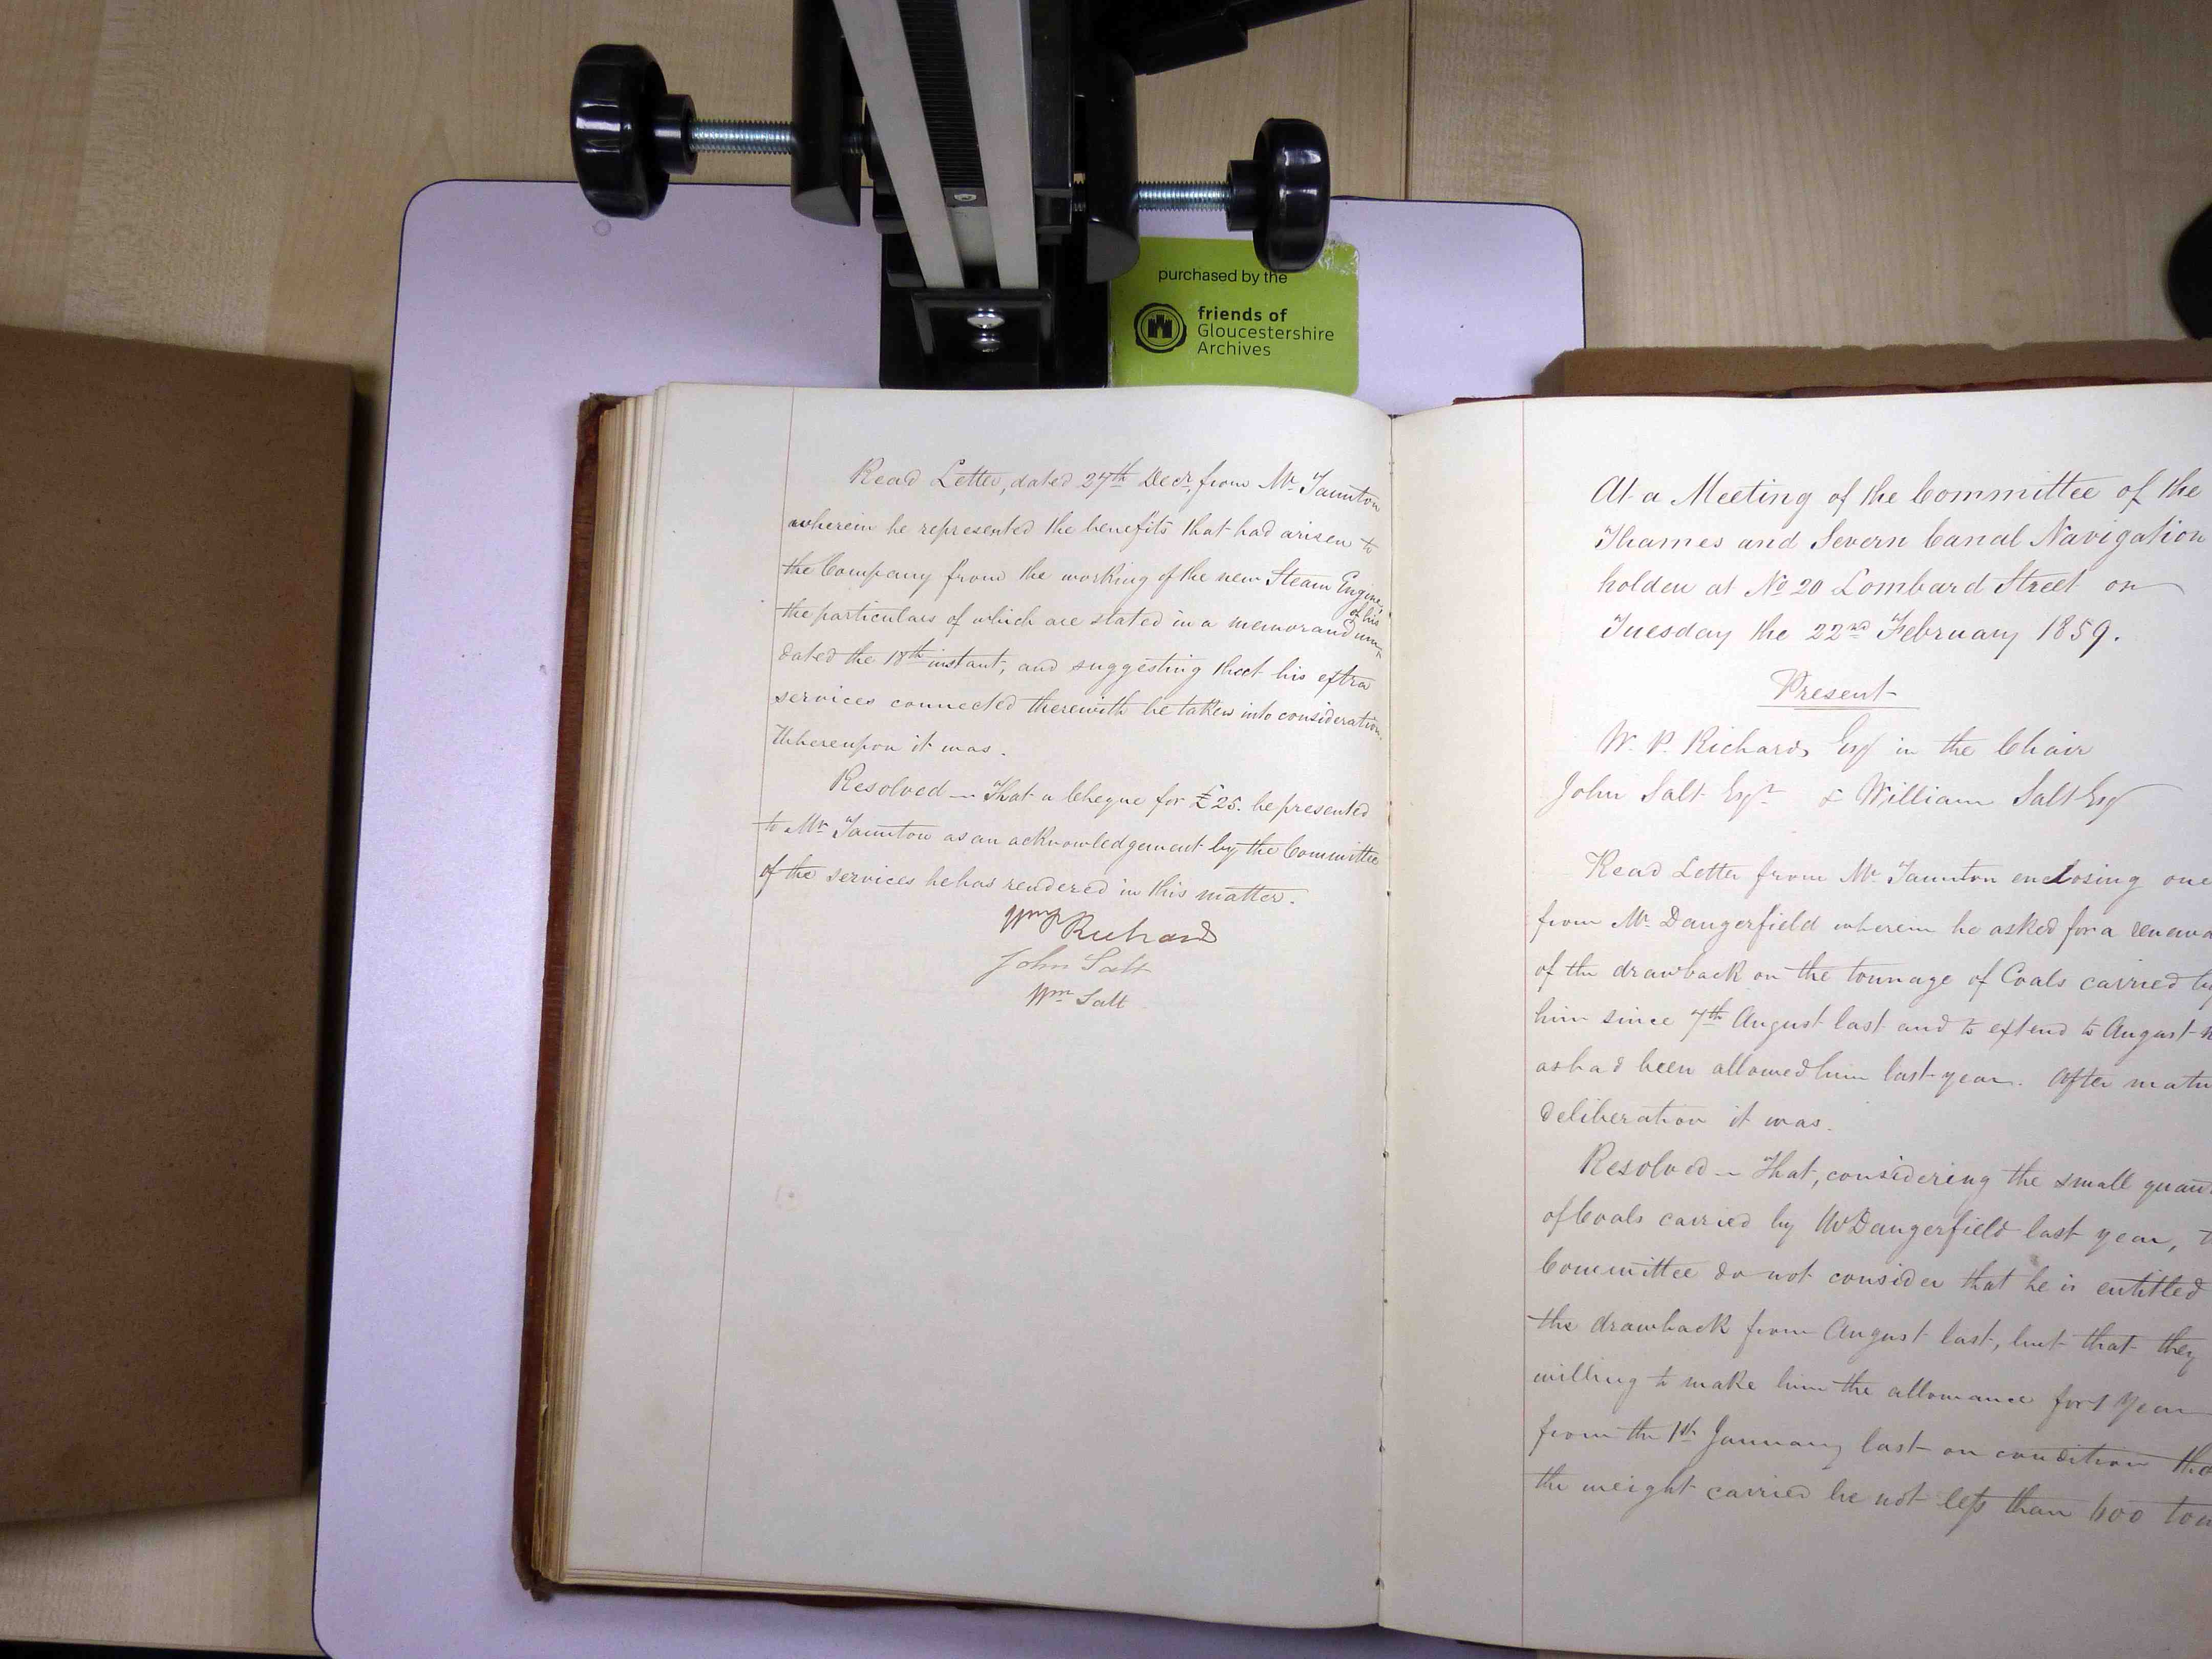 purchased by the
friends of
Gloucestershire
Archives
Read Letter, dated 27th Decr, from Mr Taunton
wherein he represented the benefits that had arisen to
the Company from the working of the new Steam Engine,
the particulars of which are stated in a memorandum
of his
dated the 18th instant, and suggesting that his extra
services connected therewith be taken into consideration.
Whereupon it was.
Resolved — That a Cheque for £25. be presented
to Mr Taunton as an acknowledgement by the Committee
of the services he has rendered in this matter.
Wm P Richards
John Salt
Wm Salt
At a Meeting of the Committee of the
Thames and Severn Canal Navigation
holden at No 20 Lombard Street on
Tuesday the 22nd February 1859.
Present
W. P. Richards Esq in the Chair
John Salt Esqr & William Salt Esq
Read Letter from Mr Taunton enclosing one
from Mr Dangerfield wherein he asked for a
of the drawback on the tonnage of Coals carried by
him since 7th August last and to extend to August
as had been allowed him last year. After
deliberation it was.
Resolved — That, considering the small
of Coals carried by Mr Dangerfield last year,
Committee do not consider that he is entitled
the drawback from August last, but that they
willing to make him the allowance for 1 Year
from the 1st January last on condition
the weight carried be not less than 600